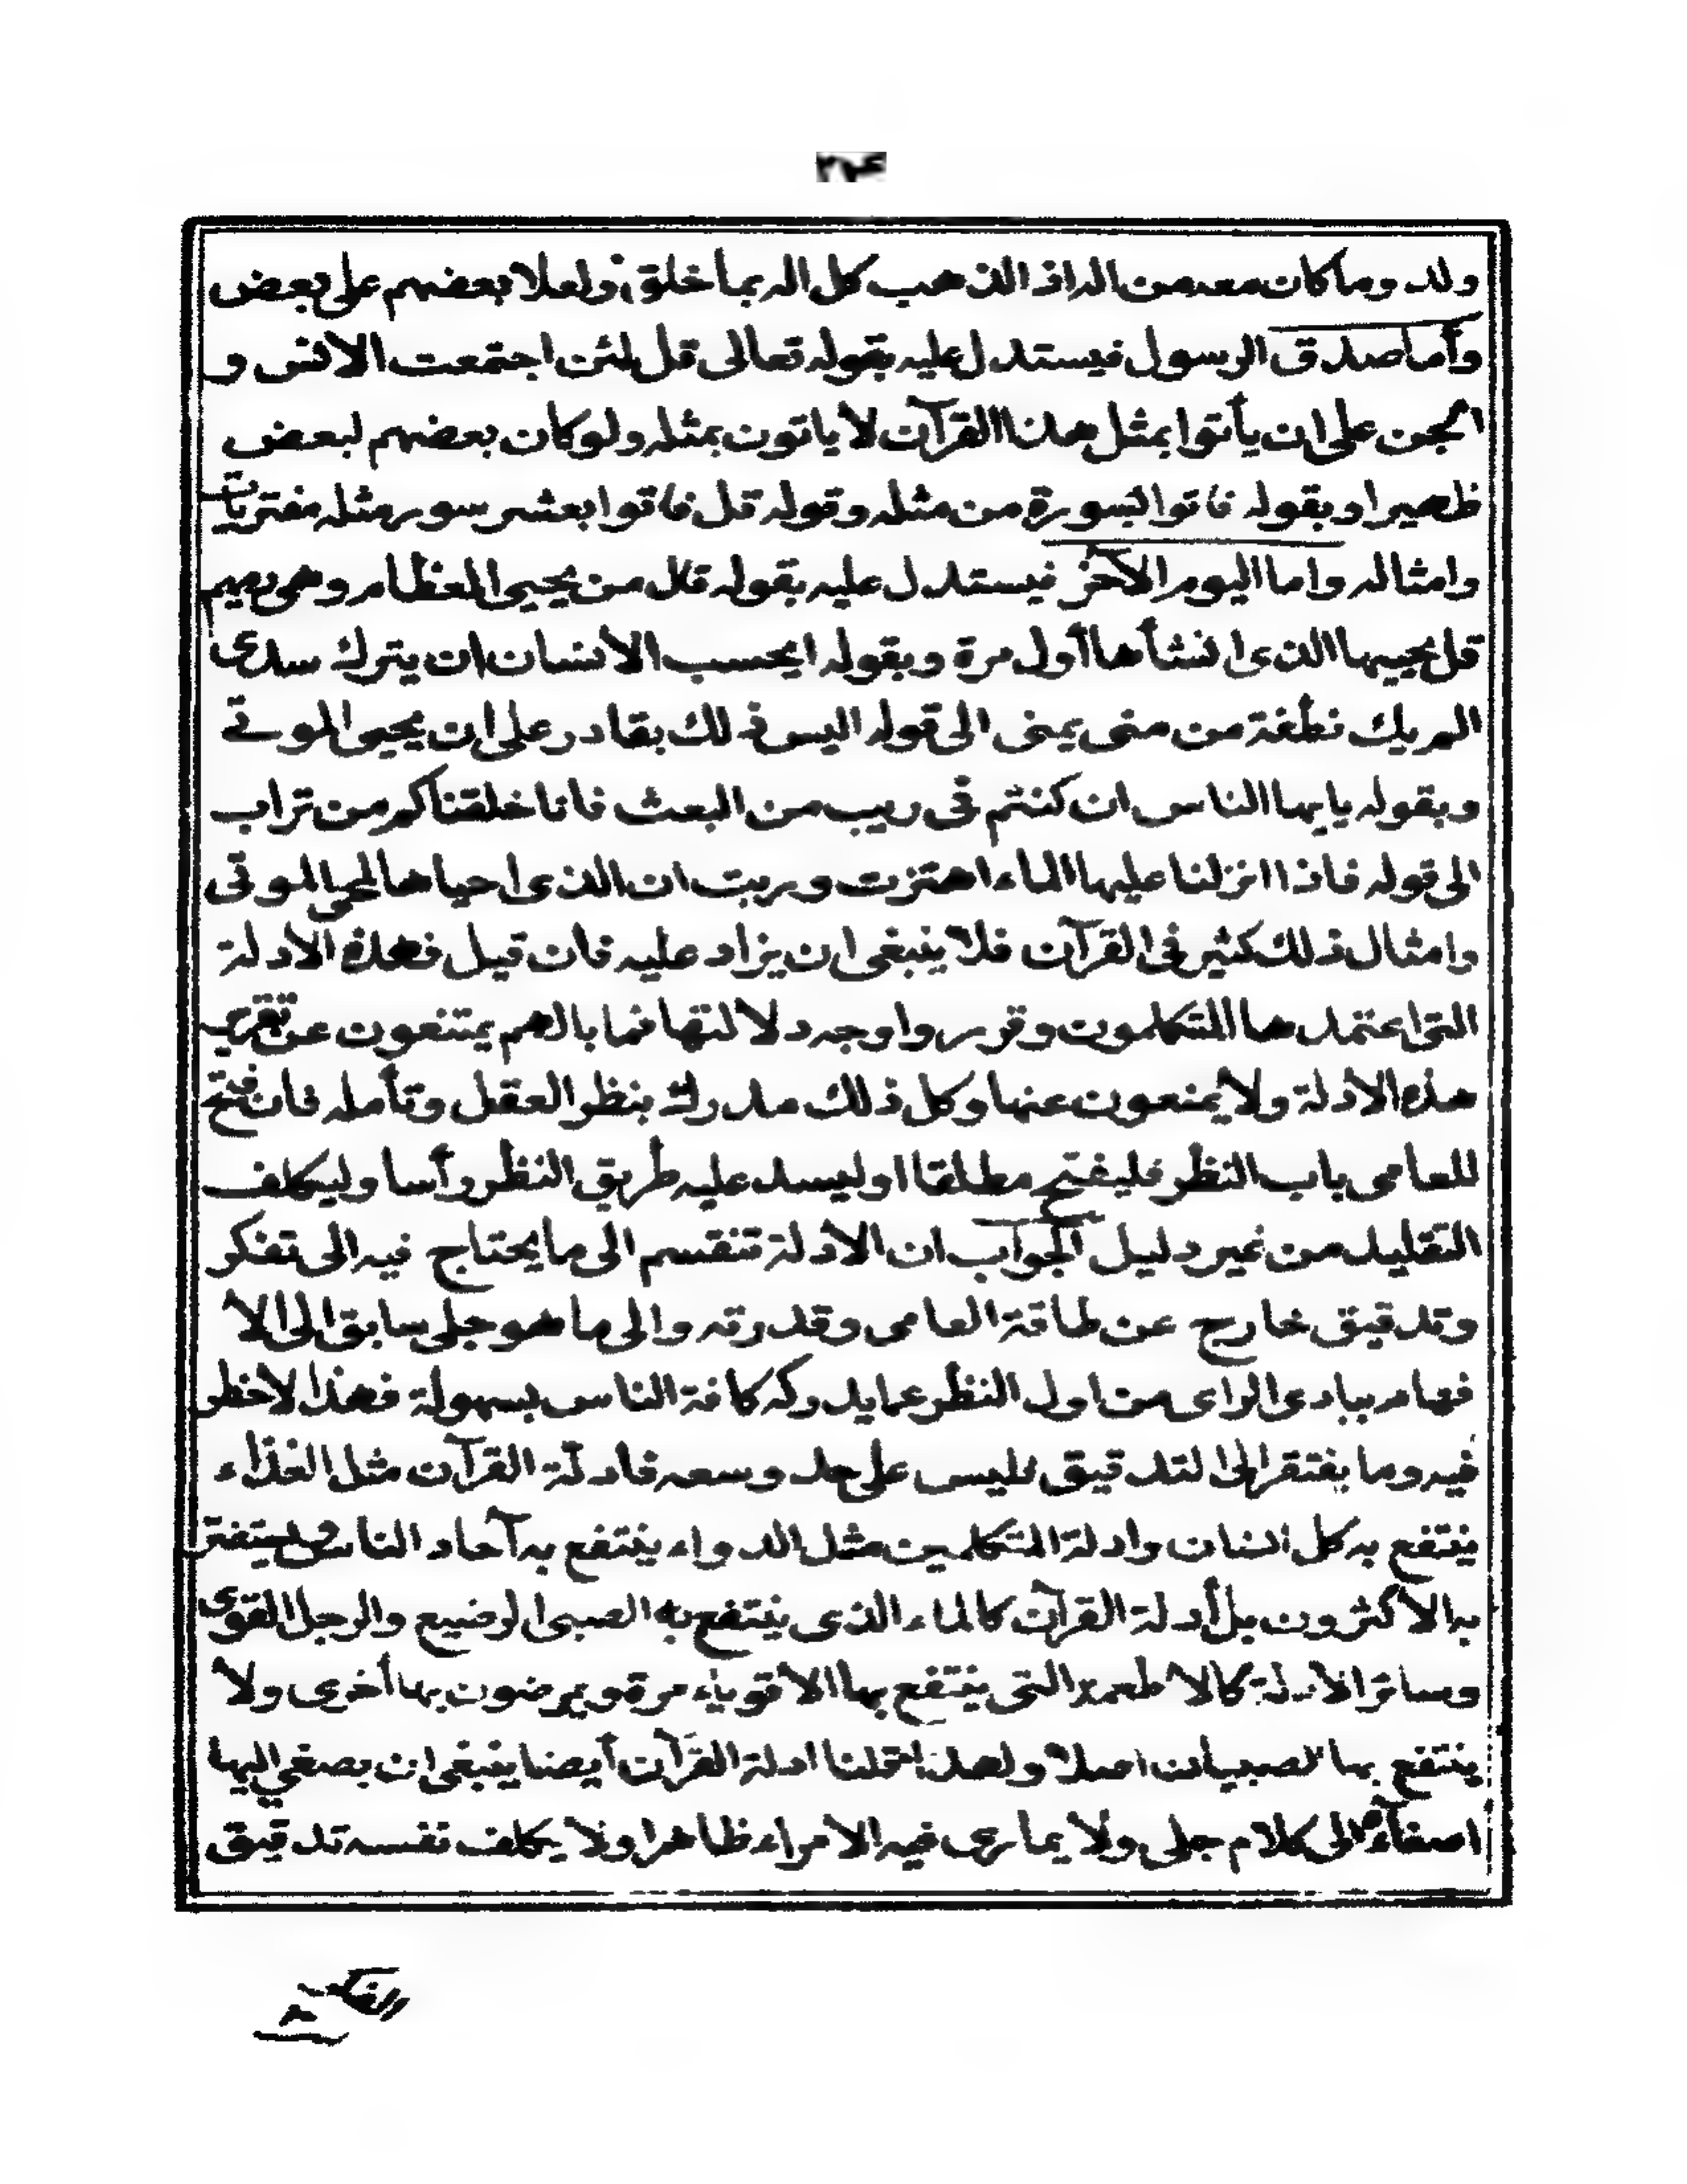 ولد وما كان معه من اله اذا لذهب كل اله بما خلق ولعلا بعضهم على بعض
وأما صدق الرسول فيستدل عليه بقوله تعالى قل لئن اجتمعت الانس و
الجن على ان يأتوا بمثل هذا القرآن لا ياتون بمثله ولو كان بعضهم لبعض
ظهيرا وبقوله فاتوا بسورة من مثله وقوله قل فاتوا بعشر سور مثله مفتريات
وامثاله واما اليوم الآخر فيستدل عليه بقوله قال من يحيى العظام وهى رميم
قل يحييها الذى انشأها أول مرة وبقوله ايحسب الأنسان ان يترك سدى
الم يك نطفة من منى يمنى الى قوله اليس ذلك بقادر على ان يحيى الموتى
وبقوله يايها الناس ان كنتم فى ريب من البعث فانا خلقناكم من تراب
الى قوله فاذا انزلنا عليها الماء اهتزت وربت ان الذى احياها لمحى الموتى
وامثال ذلك كثير فى القرآن فلا ينبغى ان يزاد عليه فان قيل فهذه الأدلة
التى اعتمدها المتكلمون وقرروا وجه دلالتها فما بالهم يمتنعون عن تقرير
هذه الأدلة ولا يمنعون عنها وكل ذلك مدرك بنظر العقل وتأمله فان فتح
للعامى باب النظر فليفتح مطلقا او ليسد عليه طريق النظر رأسا وليكلف
التقليد من غير دليل الجواب ان الأدلة تنقسم الى ما يحتاج فيه الى تفكر
وتدقيق خارج عن طاقة العامى وقدرته والى ما هو جلى سابق الى الا
فهام ببادى الراى من اول النظر عما يدركه كافة الناس بسهولة فهذا لا خطر
فيه وما يفتقر الى التدقيق فليس على حد وسعه فادلة القرآن مثل الغذاء
ينتفع به كل انسان وادلة المتكلمين مثل الدواء ينتفع به آحاد الناس ويستضر
به الأكثرون بل أدلة القرآن كالماء الذى ينتفع به الصبى الرضيع والرجل القوى
وسائر الأدلة كالأطعمة التى ينتفع بها الأقوياء مرة ويمرضون بها أخرى ولا
ينتفع بها الصبيان اصلا ولهذا قلنا ادلة القرآن أيضا ينبغى ان يصغي اليها
اصغاءه الى كلام جلى ولا يمارى فيه الا مراء ظاهرا ولا يكلف نفسه تدقيق